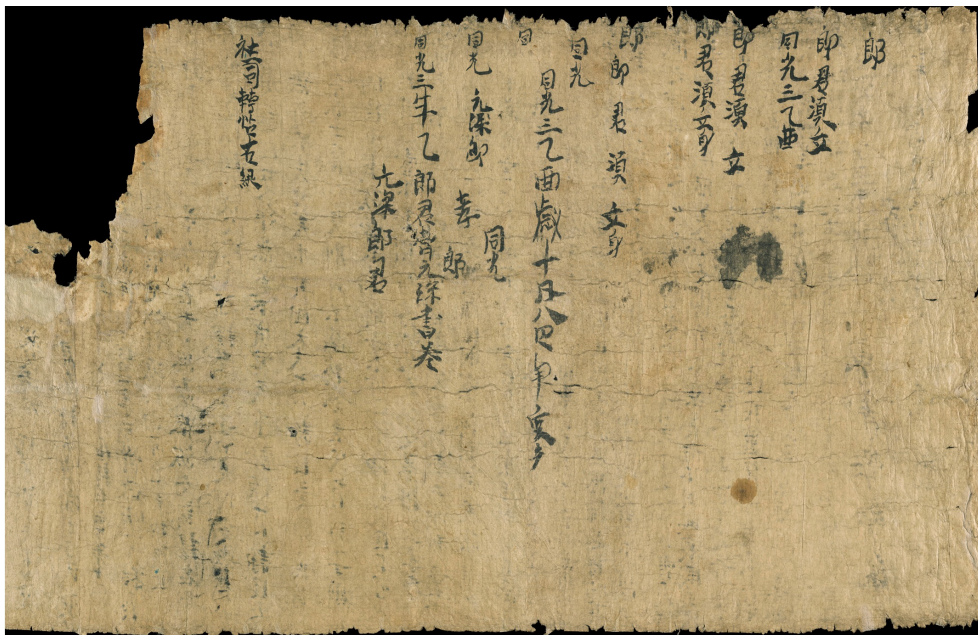 郎
郎君須立
同光三乙酉
郎君須立
郎君須立身
郎郎君須立身
同光
同光三乙酉歲十月八日
同
同光
同光 元深郎
孝郎
同光三年乙郎君 元深書卷
元深郎君
社司轉帖右緣